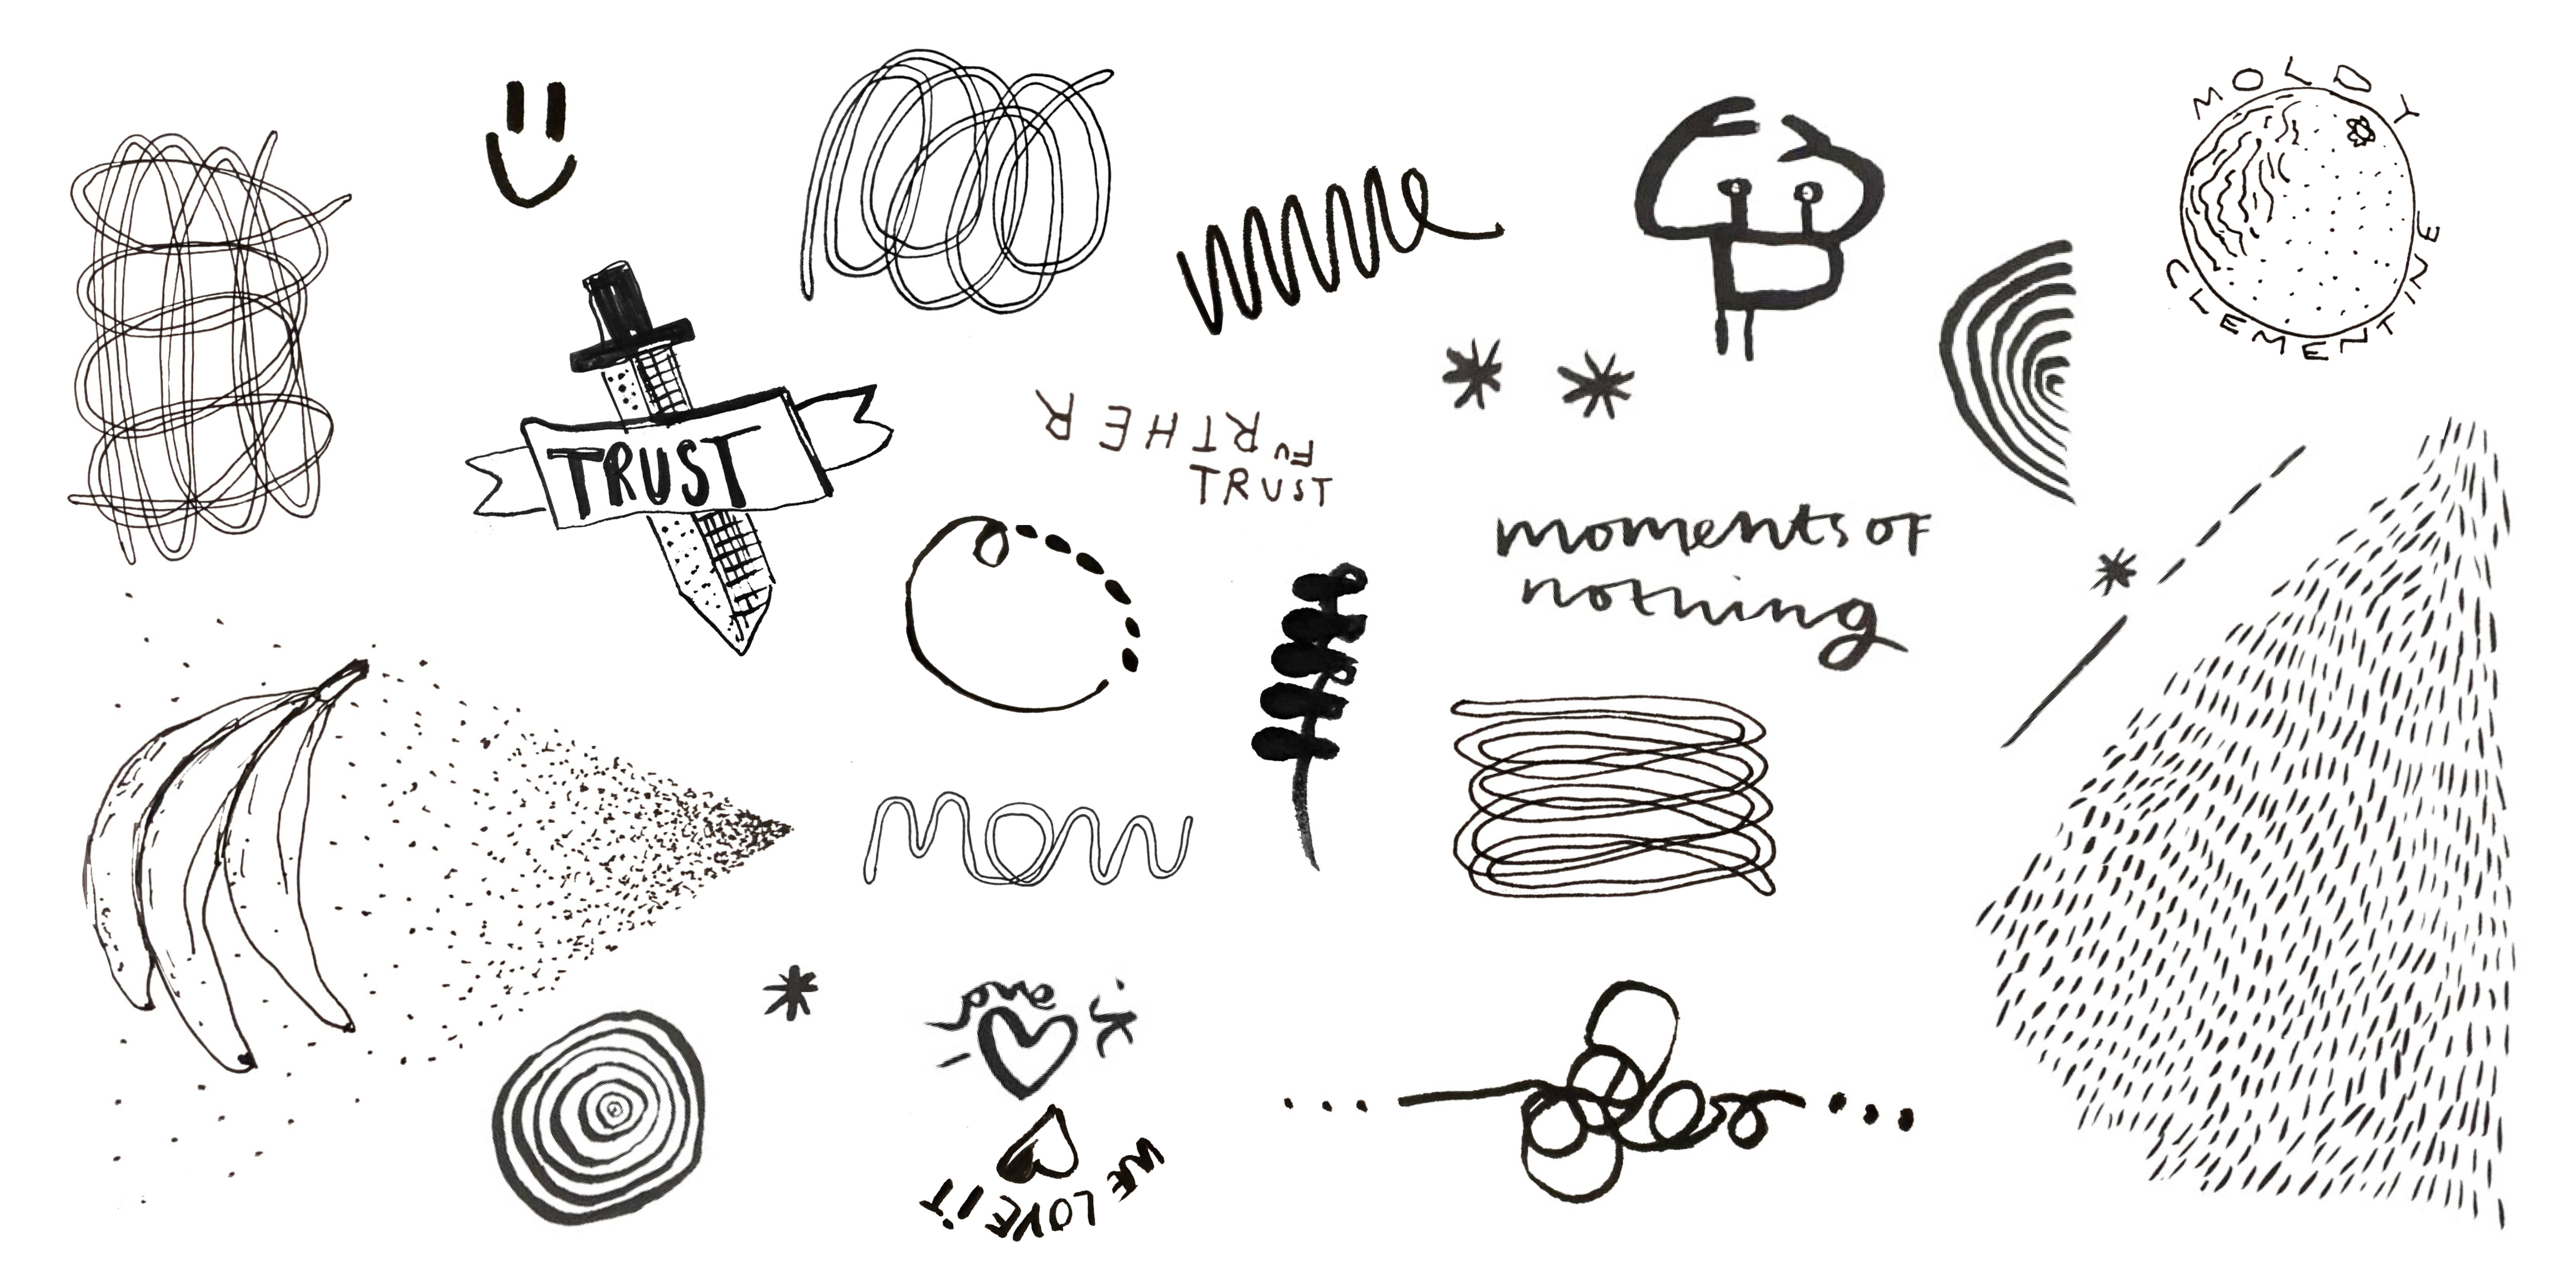 MOLDY
CLEMENTINE
TRUST
FURTHER
TRUST
moments of
nothing
mon
and
WE LOVE IT